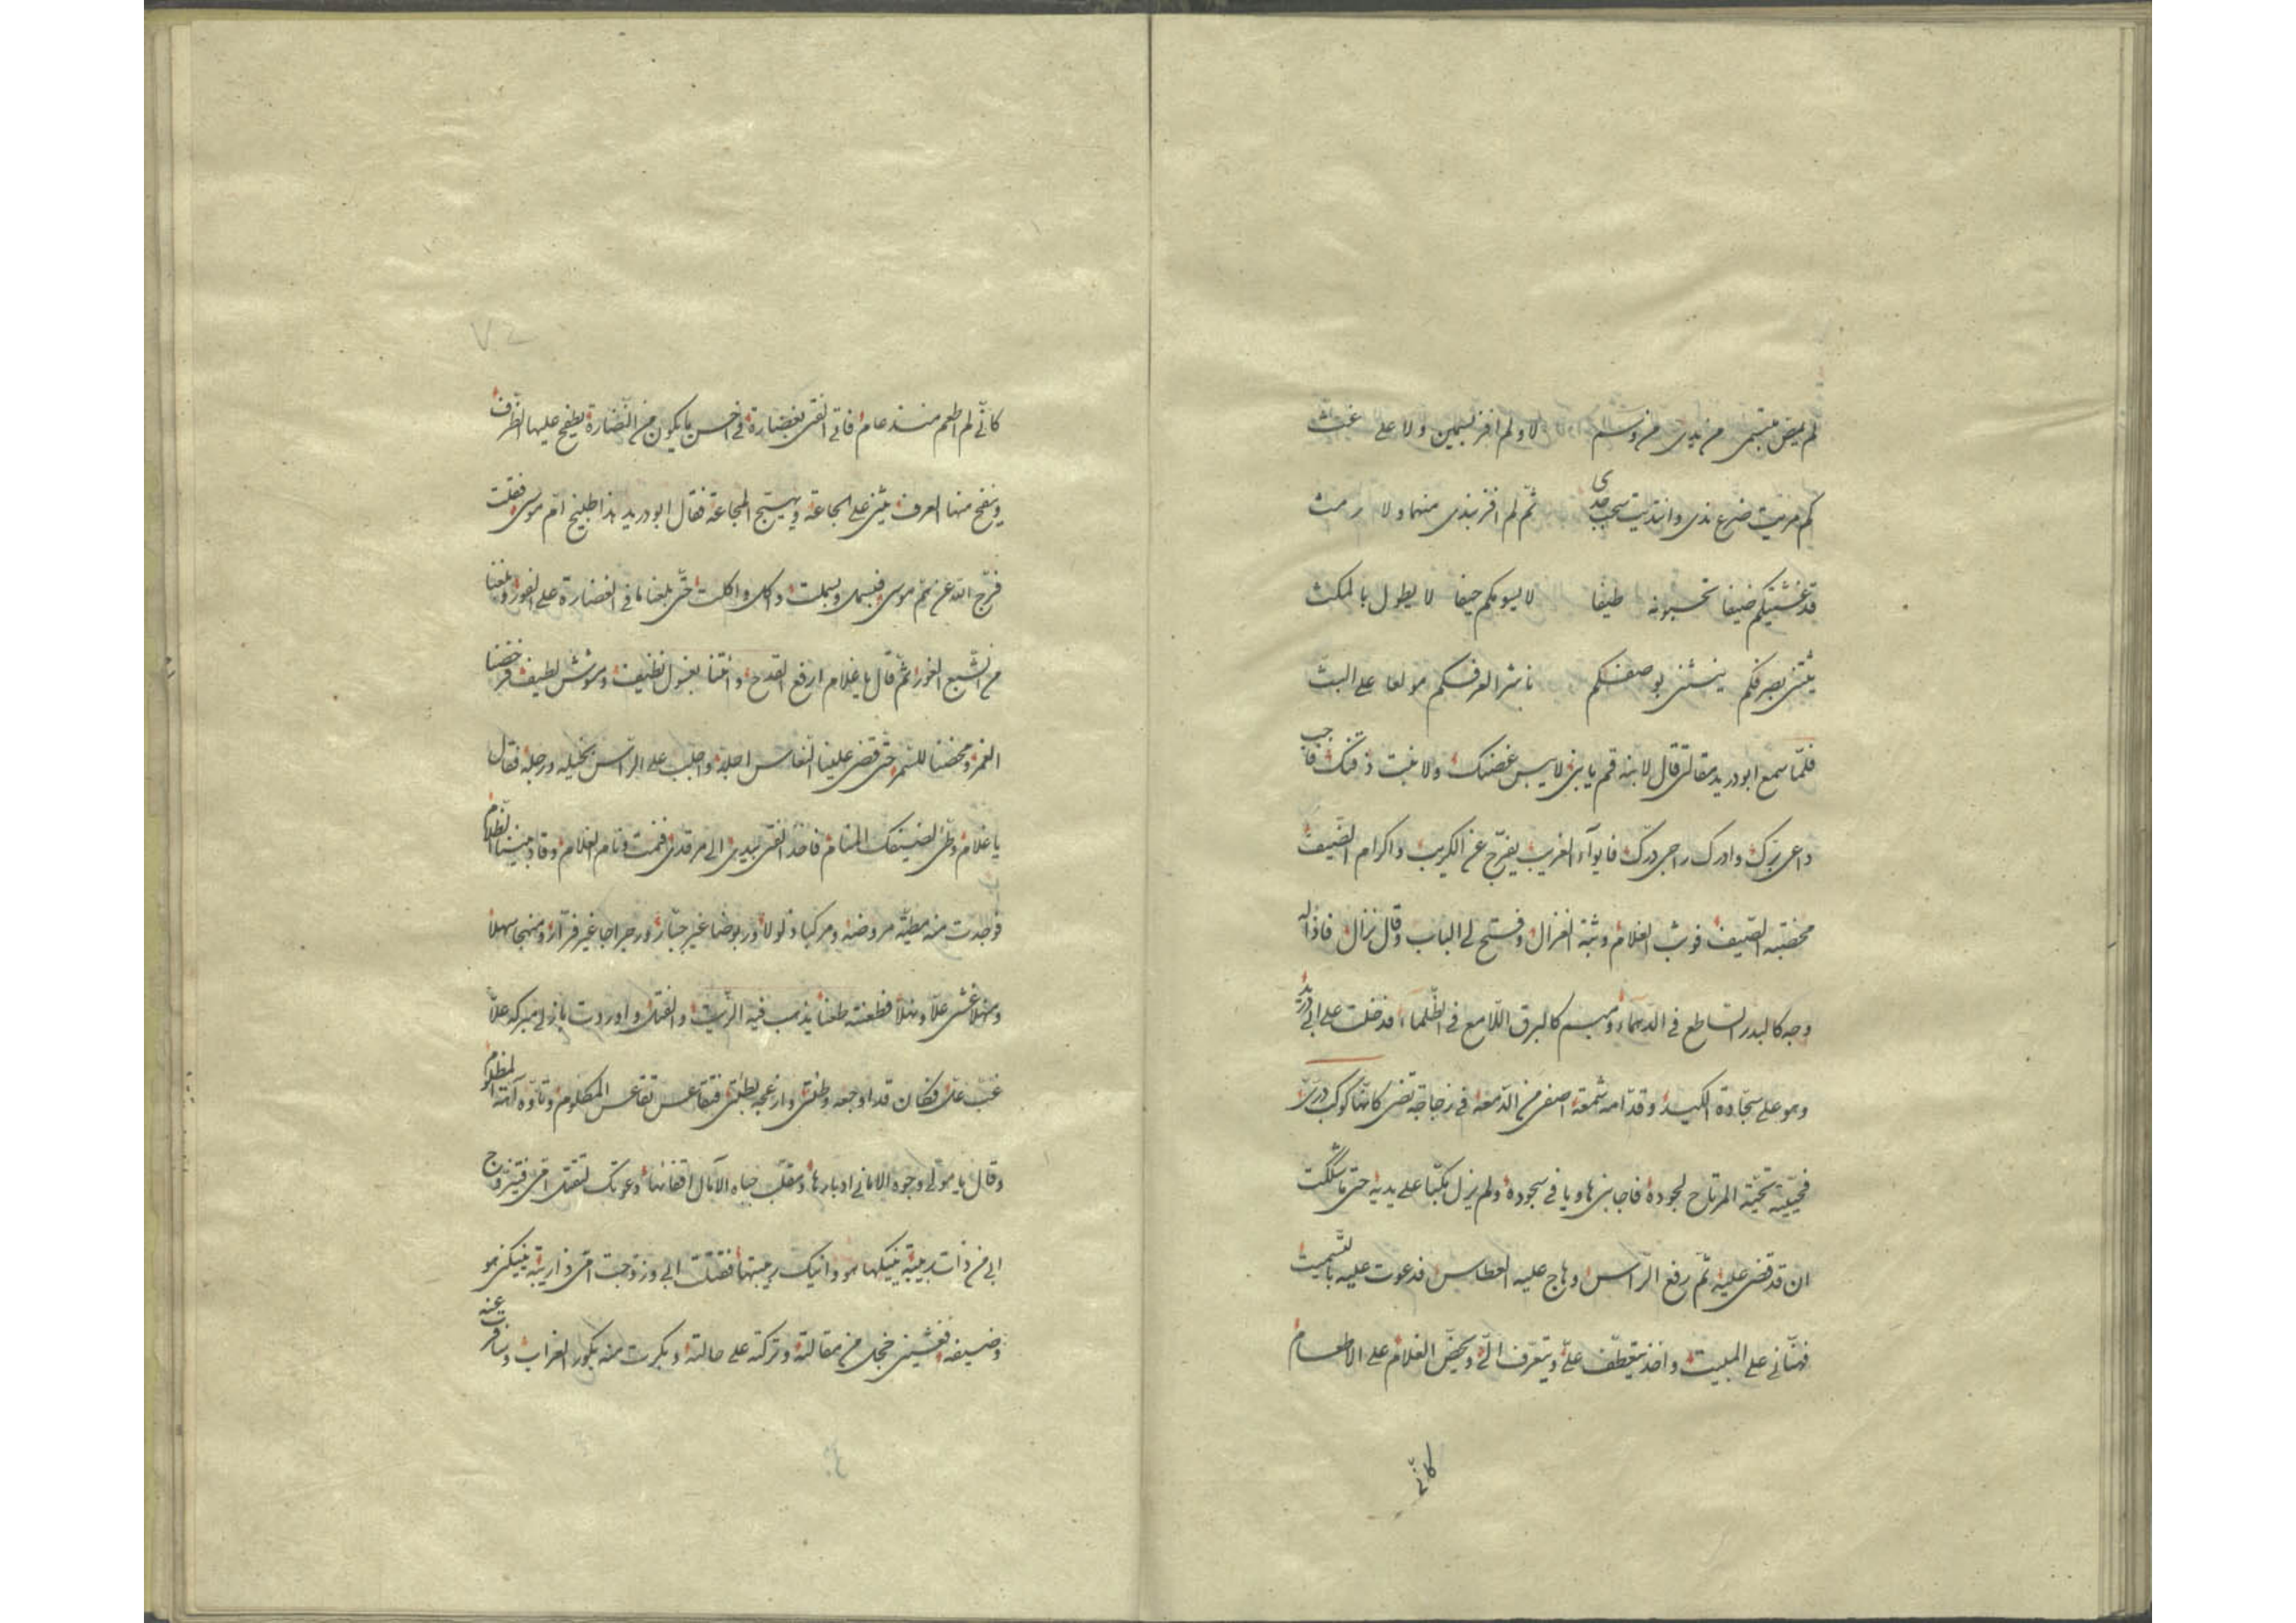 لم يمض مبتسمى من يدى من وسم لا ولم افز بسمين ولا على غث
كم مريت ضرع ندى وانتديت سحب جدى ثم لم افز بندى منهما ولا رمث
قد غشيتكم ضيفا تحسبونه طيفا لا يسومكم حيفا لا يطول بالمكث
ينثنى بصرفكم ينتشى بوصفكم ناشرا لعرفكم مولعا على البث
فلمّا سمع ابو دريد مقالتى قال لابنه قم يا بنى لا يبس غصنك ولا غبت ذقنك فاجب
داعى برّك وادرك راجى درّك فايوآء الغريب يفرّج عن الكريب واكرام الضّيف
محضبته الصّيف فوثب الغلام وثبة الغزال وفتح لى الباب وقال نزال فاذا له
وجه كالبدر السّاطع فى الدّهماء ومبسم كالبرق اللّامع فى الظّلماء فدخلت على ابى دريد
وهو على سجّادة الكيد وقدّامه شمعة اصفى من الدّمعة فى زجاجة تضئ كانّها كوكب درّىّ
فحيّيته تحيّة المرتاح لجوده فاجابنى هاويا فى سجوده ولم يزل مكبّا على يديه حتى ما شككت
ان قد قضى عليه ثمّ رفع الرّاس وهاج عليه العطاس فدعوت عليه بالتّسميت
فهنّانى على المبيت واخذ يتعطّف علىّ ويتعرّف الىّ ويحضّ الغلام على الاطعام
كانّى
كانّى لم اطعم منذ عام فاتى الفتى بغضارة فى احسن ما يكون من النّضارة يطفح عليها الظّرف
وينفح منها العرف يثنى على الجاعة ويهيّج المجاعة فقال ابو دريد هذا طبيخ امّ موسى فقلت
فرّج الله عن امّ موسى فبسمل وبسملت واكل واكلت حتّى بلغنا ما فى الغضارة على الفور وبلغنا
من الشّبع الغور ثمّ قال يا غلام ارفع القدح واتنا بغسول نظيف ومشوش لطيف فرحضنا
الغمر ومحضنا للسّمر حتّى قضى علينا النّعاس اجله واجلب على الرّاس بخيله ورجله فقال
يا غلام وطّئ لضيفك المنام فاخذ الفتى بيدى الى مرقدى فنمت ونام الغلام وقاد بيننا الظّلام
فوجدت منه مطيّة مروضة ومركبا ذلولا وربوضا غير جبّار ورجراجا غير فرّار ومنهجا سهلا
ومنهلا غشى علّا ونهلا فطعنته طعنا يذهب فيه الزّيت والفتل واوردت بازلى مبركه علّا
غبّ علّ فكان قد اوجعه وطئتى وارغجه بطئتى فتقاعس تقاعس المكلوم وتاوّه آهة المظلوم
وقال يا مولى وجوه الامانى ادبارها ومقلّب جباه الآمال اقفائها دعوتك لتقتل امّى فيتزوّج
ابى من ذات ربيبة ينيكها هو وانيك ربيبتها فقتلت ابى وزوّجت امّى ذا ربيبة ينيكنى هو
وضيفه فغشينى خجل من مقالته وتركته على حالته وبكرت منه بكور الغراب وسافرت عنه